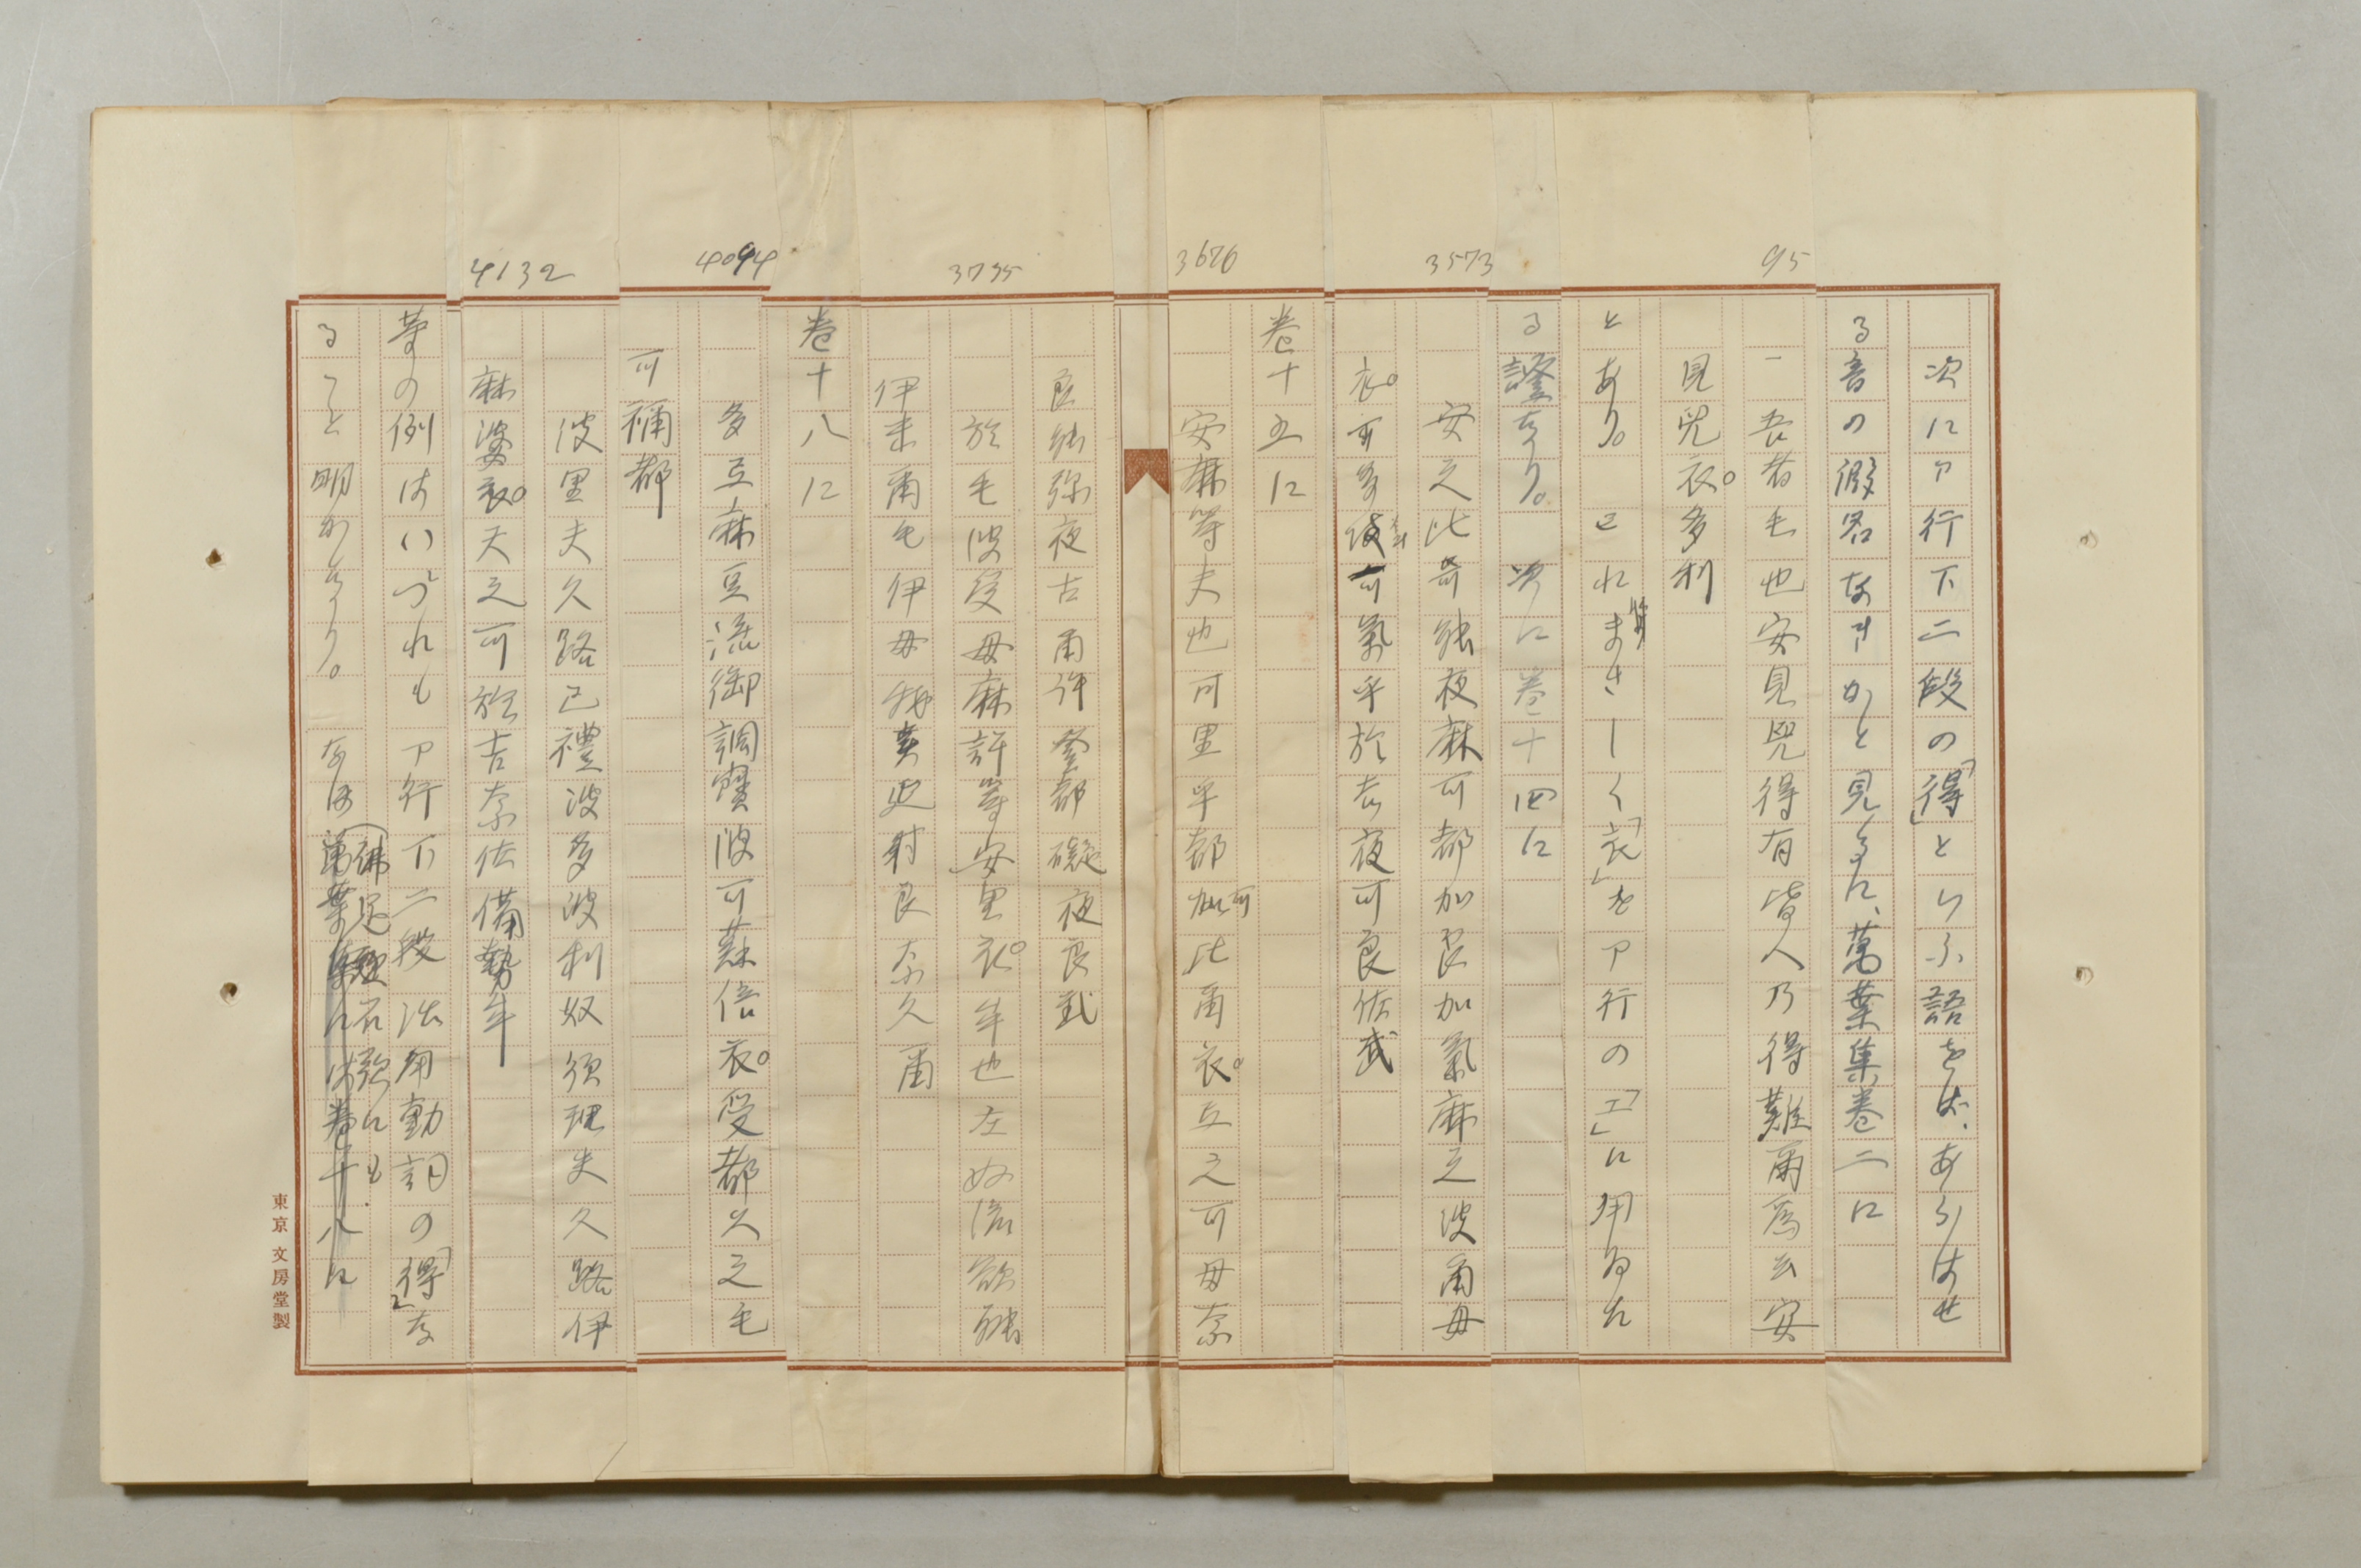 95
次にア行下二段の「得」といふ語をば、あらはせ
る音の假名なりやと見るに、萬葉集卷二に
吾者毛也安見兒得有皆人乃得難爾爲云安
見兒衣。多利
とあり。これまさしく「衣」をア行の「エ」に用ゐた
る證なり。次に卷十四に
3573
安之比奇能夜麻可都加良加氣麻之波爾母
衣。可多伎可氣乎於吉夜可良佐武
卷十五に
3676
安麻等夫也可里乎都可比爾衣。弖之可母奈
良能弥夜古爾許登都礙夜良武
3735
於毛波受母麻許等安里衣。牟也左奴流欲能
伊米爾毛伊母我美延射良奈久爾
卷十八に
4094
多弖麻豆流御調寶波可蘇倍衣。受都久之毛
可禰都
4132
波里夫久路己禮波多波利奴須理夫久路伊
麻波衣。天之可於吉奈佐備勢牟
等の例はいづれもア行下二段活用動詞の「得」な
ること明かなり。なほ佛足跡石歌にも
東京文房堂製